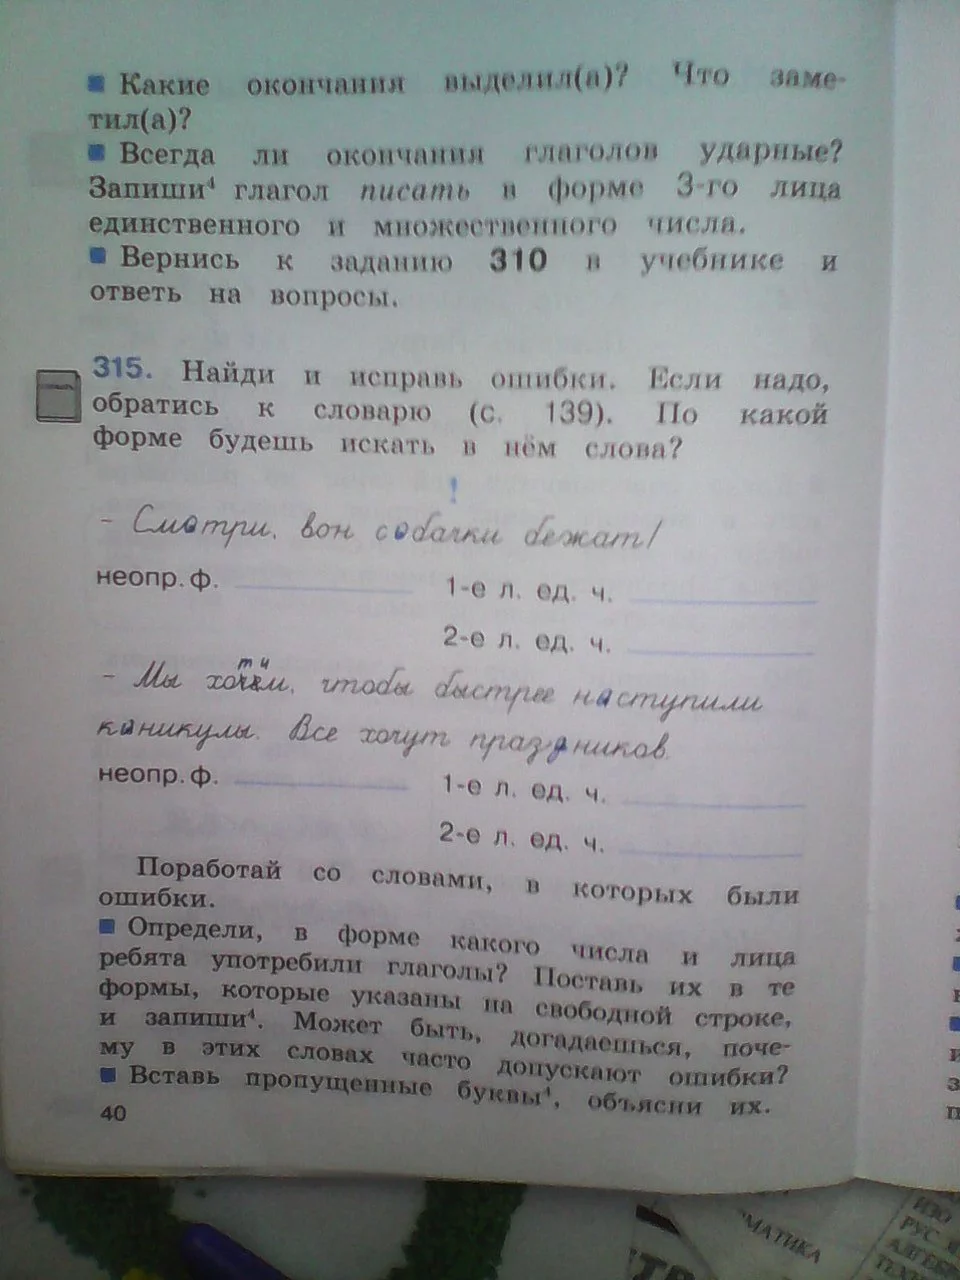 Какие окончания выделил(а)? Что заме-
тил(а)?
Всегда ли окончания глаголов ударные?
Запиши⁴ глагол писать в форме 3-го лица
единственного и множественного числа.
Вернись к заданию 310 в учебнике и
ответь на вопросы.
315. Найди и исправь ошибки. Если надо,
обратись к словарю (с. 139). По какой
форме будешь искать в нём слова?
!
- Смотри, вон собачки бежат!
неопр. ф. 1-е л. ед. ч.
2-е л. ед. ч.
ти
- Мы хочем, чтобы быстрее наступили
каникулы. Все хочут праздников.
неопр. ф. 1-е л. ед. ч.
2-е л. ед. ч.
Поработай со словами, в которых были
ошибки.
Определи, в форме какого числа и лица
ребята употребили глаголы? Поставь их в те
формы, которые указаны на свободной строке,
и запиши⁴. Может быть, догадаешься, поче-
му в этих словах часто допускают ошибки?
Вставь пропущенные буквы⁴, объясни их.
40
МАТИКА
ИЗО
РУС. Я
АЛГЕБ
ТЕХН